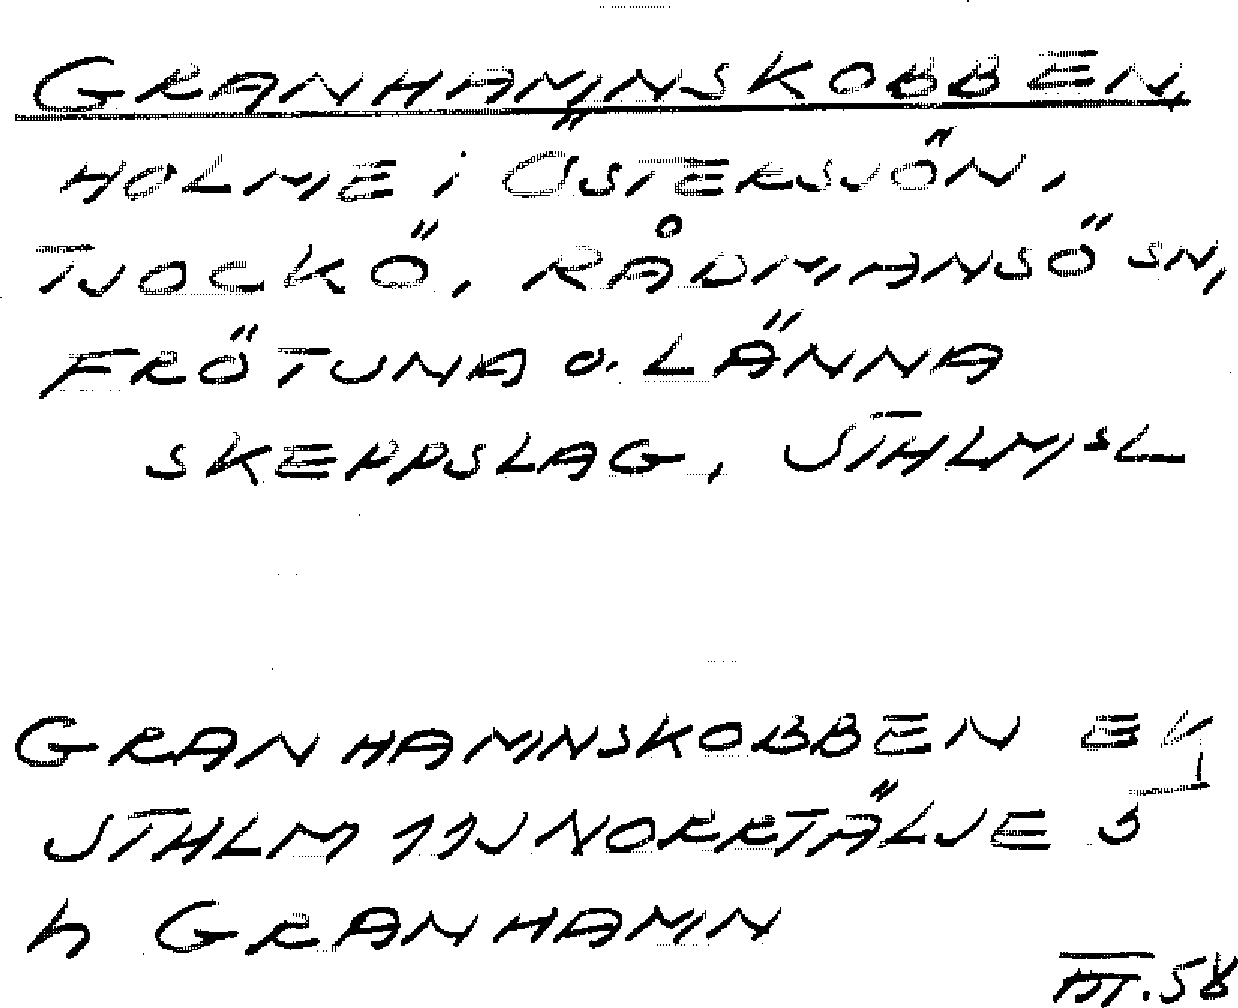 GRANHAMNSKOBBEN,
HOLME i ÖSTERSJÖN,
TJOCKÖ, RÅDMANSÖ SN,
FRÖTUNA O. LÄNNA
SKEPPSLAG, STHLMSL
GRANHAMNSKOBBEN EK
STHLM 11J NORRTÄLJE
h GRANHAMN
III.58